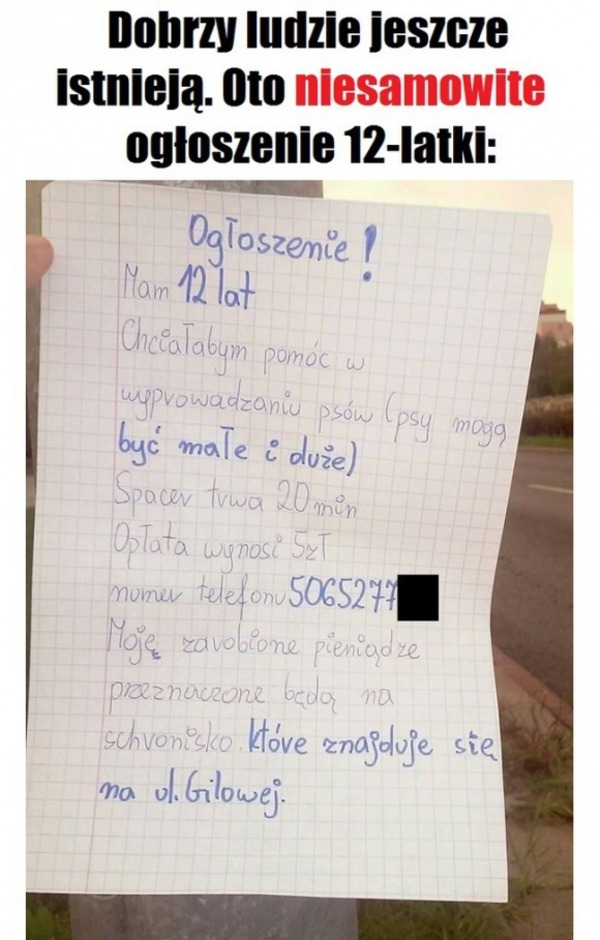 Dobrzy ludzie jeszcze
istnieją. Oto niesamowite
ogłoszenie 12-latki:
Ogłoszenie!
Mam 12 lat
Chciałabym pomóc w
wyprowadzaniu psów (psy mogą
być małe i duże)
Spacer trwa 20 min
Opłata wynosi 5zł
numer telefonu 5065277
Moję zarobione pieniądze
przeznaczone będą na
schronisko które znajduje się
na ul. Gilowej.